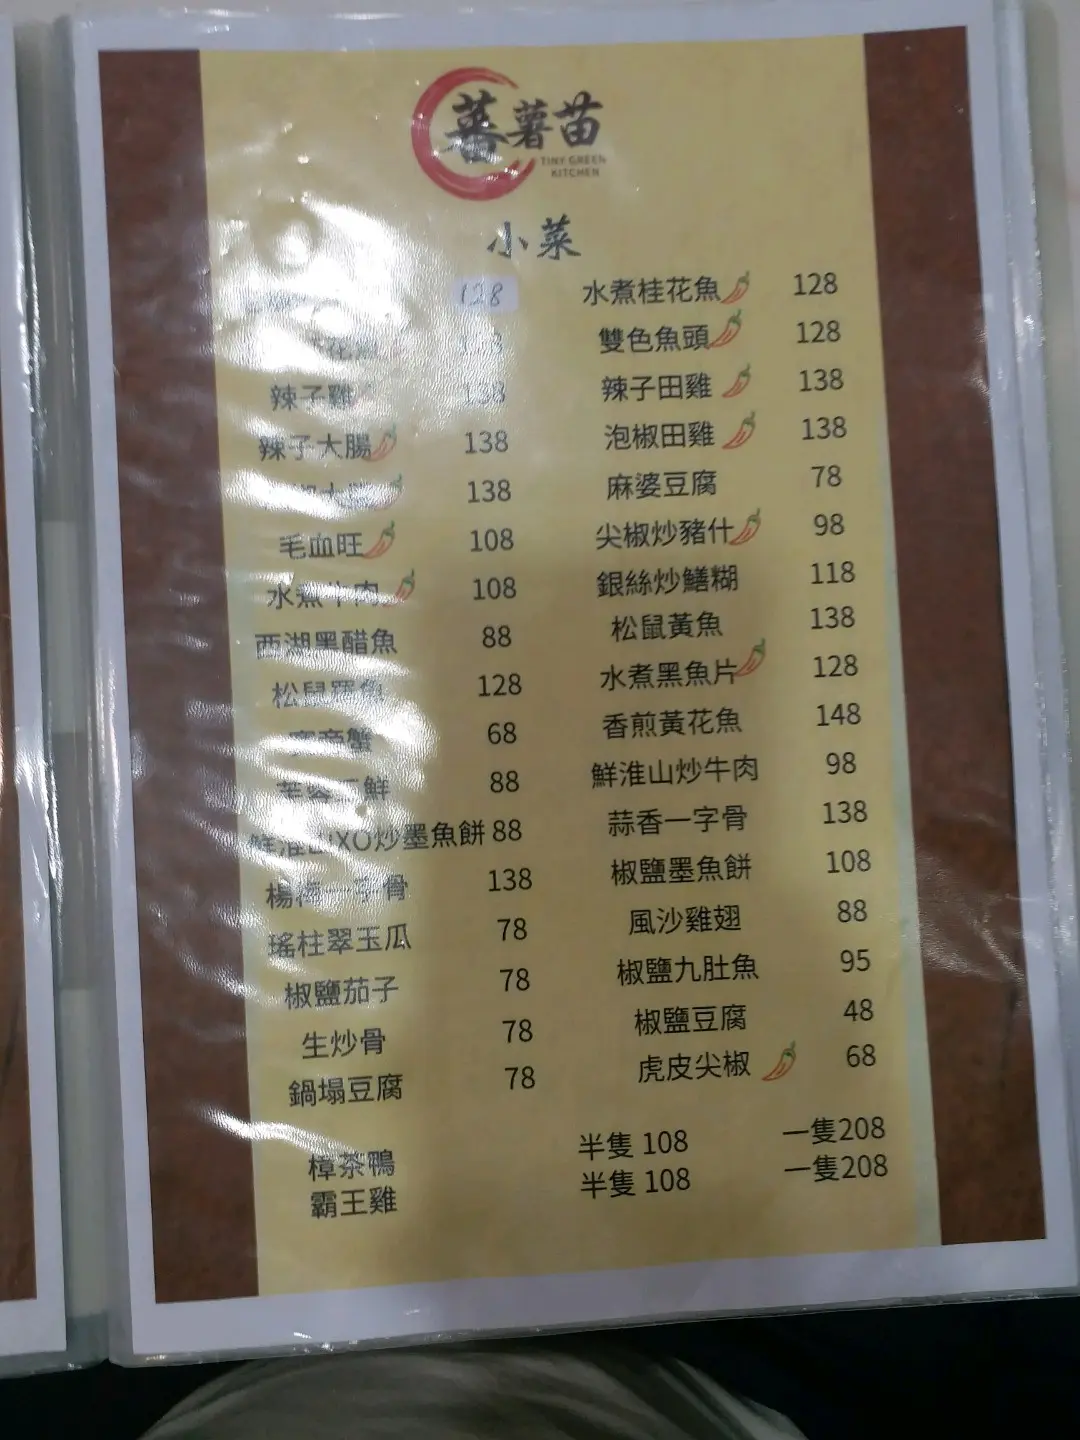 蕃薯苗
TINY GREEN
KITCHEN
小菜
128
花
辣子雞 138
辣子大腸 138
138
毛血旺 108
水煮牛肉 108
西湖黑醋魚 88
松鼠 魚 128
蟹 68
鮮 88
鮮淮山XO炒墨魚餅 88
楊梅一字骨 138
瑤柱翠玉瓜 78
椒鹽茄子 78
生炒骨 78
鍋塌豆腐 78
水煮桂花魚 128
雙色魚頭 128
辣子田雞 138
泡椒田雞 138
麻婆豆腐 78
尖椒炒豬什 98
銀絲炒鱔糊 118
松鼠黃魚 138
水煮黑魚片 128
香煎黃花魚 148
鮮淮山炒牛肉 98
蒜香一字骨 138
椒鹽墨魚餅 108
風沙雞翅 88
椒鹽九肚魚 95
椒鹽豆腐 48
虎皮尖椒 68
樟茶鴨 半隻 108 一隻208
霸王雞 半隻 108 一隻208